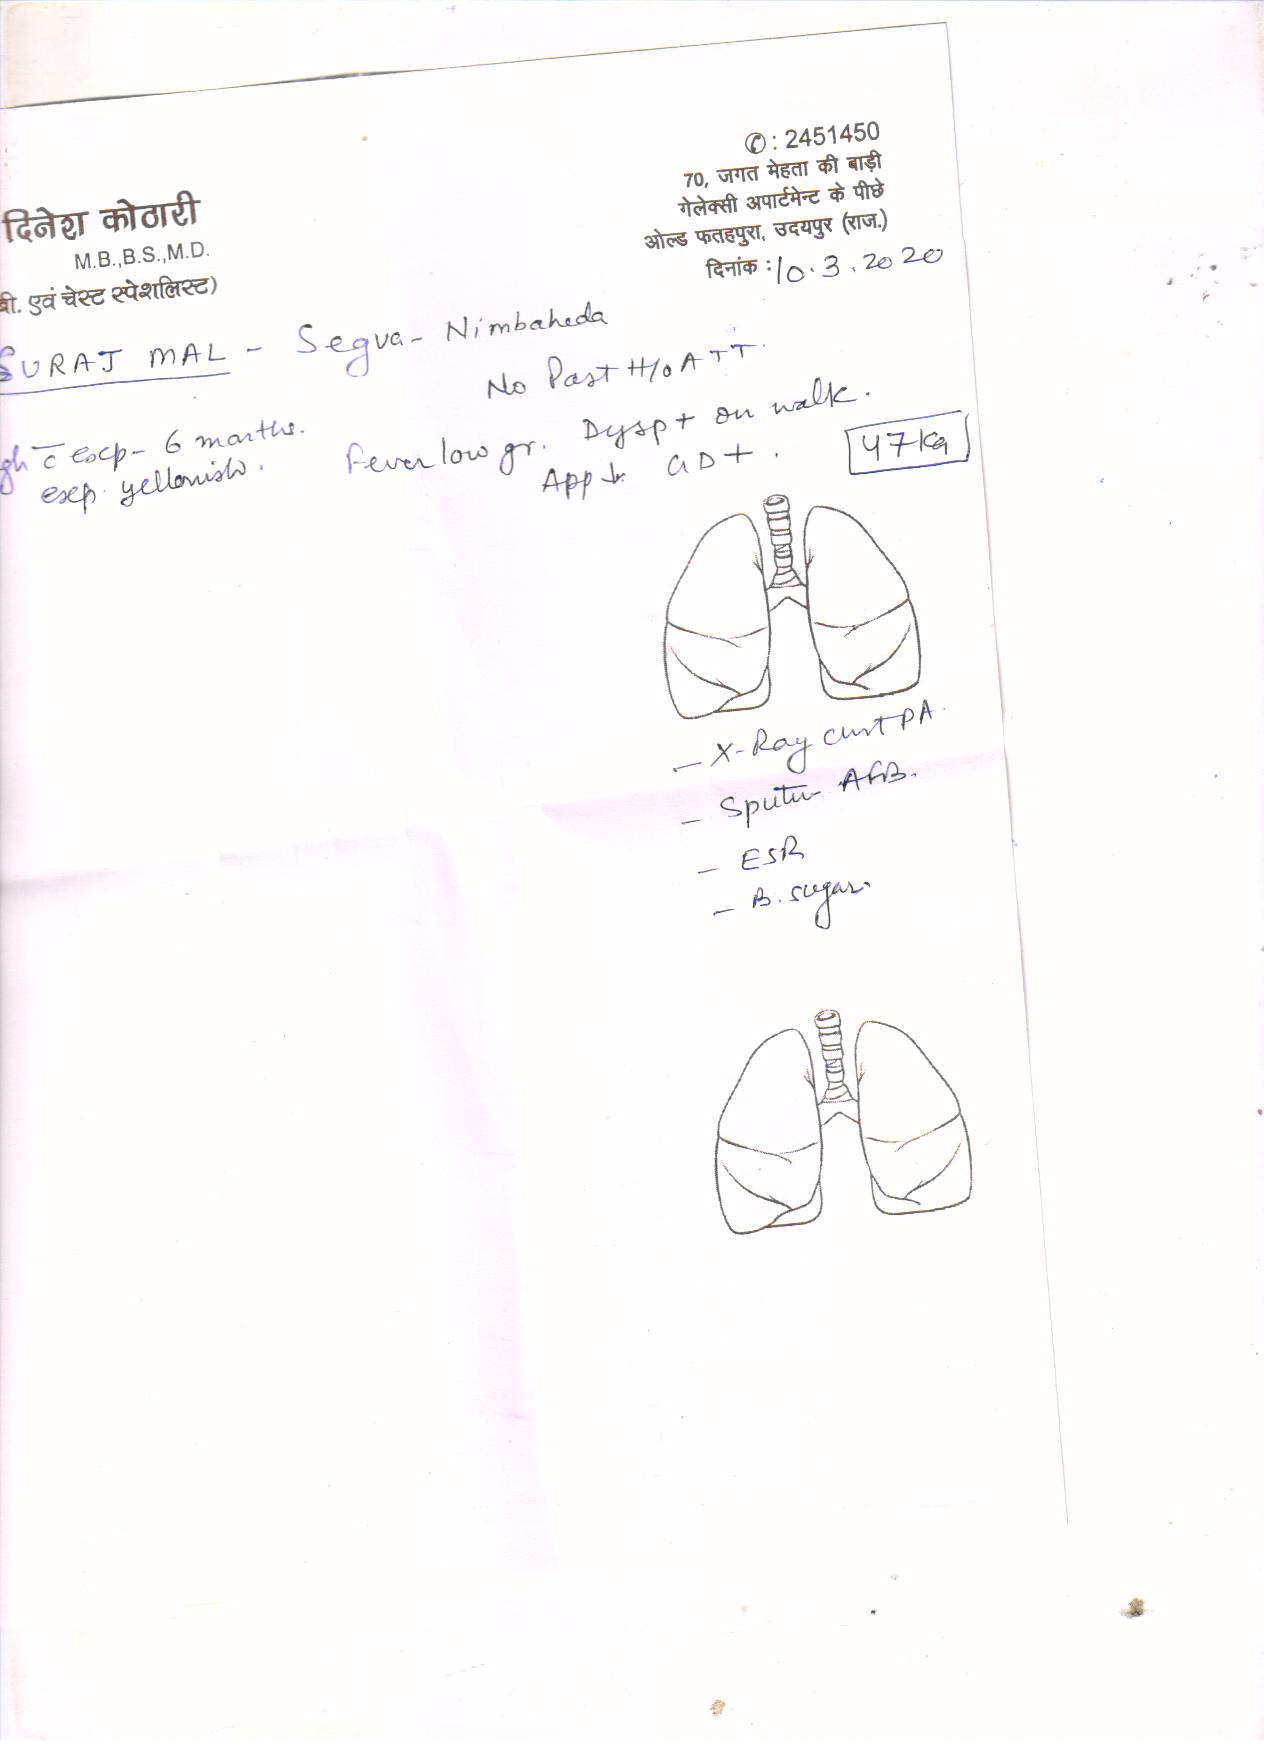 ✆: 2451450
70, जगत मेहता की बाड़ी
गेलेक्सी अपार्टमेन्ट के पीछे
ओल्ड फतहपुरा, उदयपुर (राज.)
दिनांक : 10.3.2020
दिनेश कोठारी
M.B.,B.S.,M.D.
बी. एवं चेस्ट स्पेशलिस्ट)
SURAJ MAL - Segva - Nimbaheda
No Past H/o ATT.
gh c̄ exp - 6 months.
exp. yellowish.
Fever low gr. Dysp + on walk.
App ↓. GD +.
47 Kg
- X-Ray Chest PA.
- Sputum AFB.
- ESR
- B. sugar.